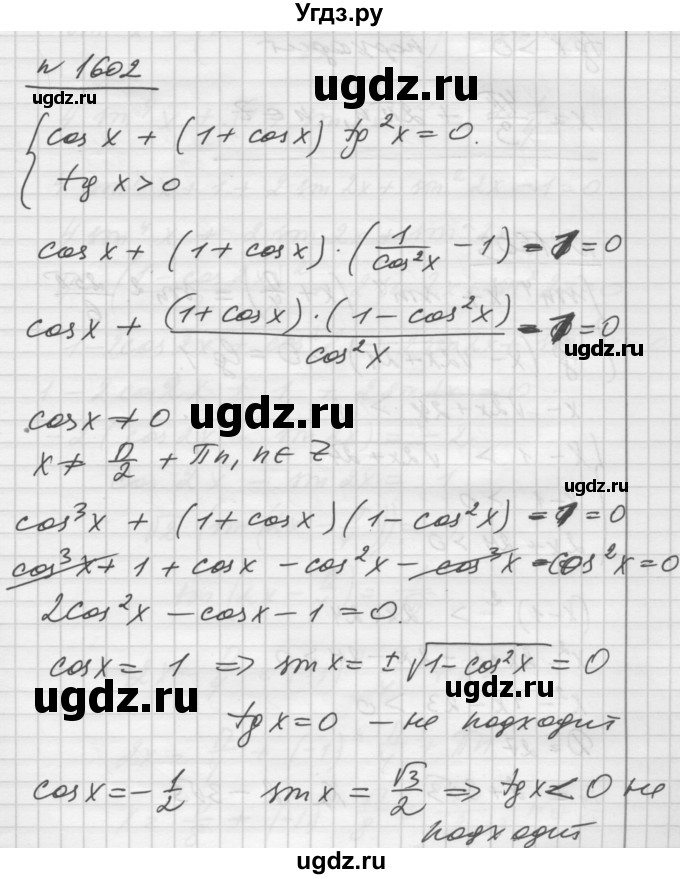 Угдз.ру
n 1602
ugdz.ru
ugdz.ru
cos x + (1 + cos x) tg²x = 0.
tg x > 0
cos x + (1 + cos x) · (1/cos²x - 1) - 1 = 0
cos x + (1 + cos x) · (1 - cos²x)/cos²x - 1 = 0
ugdz.ru
cos x ≠ 0
ugdz.ru
x ≠ π/2 + πn, n ∈ Z
ugdz.ru
cos³x + (1 + cos x)(1 - cos²x) - 1 = 0
cos³x + 1 + cos x - cos²x - cos³x - cos²x = 0
2cos²x - cos x - 1 = 0.
ugdz.ru
cos x = 1 => sin x = ± √1 - cos²x = 0
ugdz.ru
ugdz.ru
tg x = 0 - не подходит
cos x = -1/2 sin x = √3/2 => tg x < 0 не
подходит
ugdz.ru
Угдз.ру